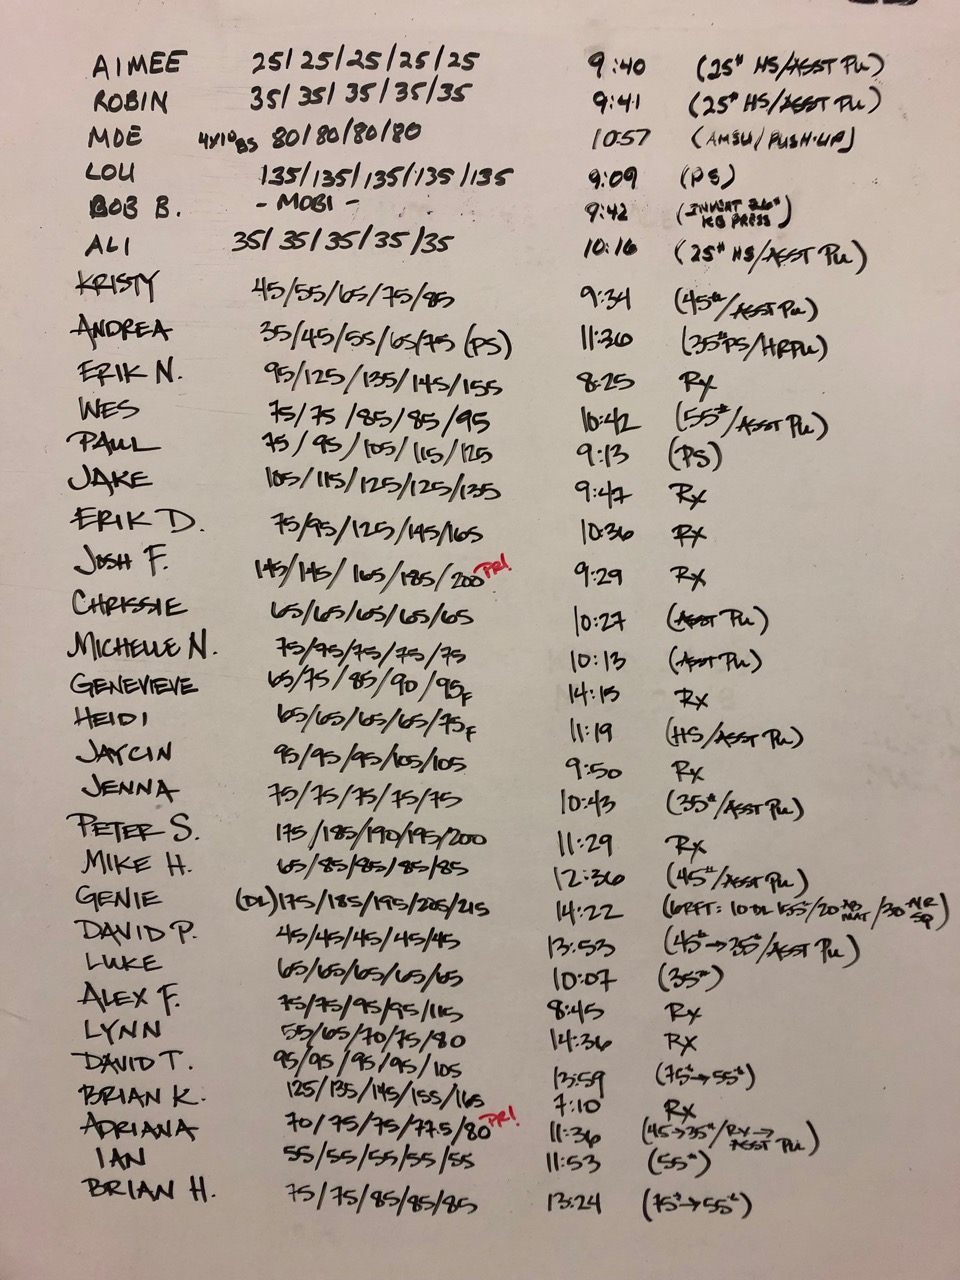 AIMEE 25/25/25/25/25 9:40 (25# HS/ASST PU)
ROBIN 35/35/35/35/35 9:41 (25# HS/ASST PU)
MOE 4x10 BS 80/80/80/80 10:57 (AMSU/PUSH-UP)
LOU 135/135/135/135/135 9:09 (PS)
BOB B. - MOBI - 9:42 (26# KB PRESS)
ALI 35/35/35/35/35 10:16 (25# HS/ASST PU)
KRISTY 45/55/65/75/85 9:34 (45#/ASST PU)
ANDREA 35/45/55/65/75 (PS) 11:36 (35# PS/HRPU)
ERIK N. 95/125/135/145/155 8:25 Rx
WES 75/75/85/85/95 10:42 (55#/ASST PU)
PAUL 75/95/105/115/125 9:13 (PS)
JAKE 105/115/125/125/135 9:47 Rx
ERIK D. 75/95/125/145/165 10:36 Rx
JOSH F. 145/145/165/185/200 PR! 9:29 Rx
CHRISSIE 65/65/65/65/65 10:27 (ASST PU)
MICHELLE N. 75/75/75/75/75 10:13 (ASST PU)
GENEVIEVE 65/75/85/90/95F 14:15 Rx
HEIDI 65/65/65/65/75F 11:19 (HS/ASST PU)
JAYCIN 95/95/95/105/105 9:50 Rx
JENNA 75/75/75/75/75 10:43 (35#/ASST PU)
PETER S. 175/185/190/195/200 11:29 Rx
MIKE H. 65/85/85/85/85 12:36 (45#/ASST PU)
GENIE (DL) 175/185/195/205/215 14:22 (6RFT: 10 DL 155#/20 AB MAT/30 AIR SQ)
DAVID P. 45/45/45/45/45 13:53 (45#→35#/ASST PU)
LUKE 65/65/65/65/65 10:07 (35#)
ALEX F. 75/75/95/95/115 8:45 Rx
LYNN 55/65/70/75/80 14:36 Rx
DAVID T. 95/95/95/95/105 13:59 (75#→55#)
BRIAN K. 125/135/145/155/165 7:10 Rx
ADRIANA 70/75/75/77.5/80 PR! 11:36 (45→35#/RX→ASST PU)
IAN 55/55/55/55/55 11:53 (55#)
BRIAN H. 75/75/85/85/85 13:24 (75#→55#)